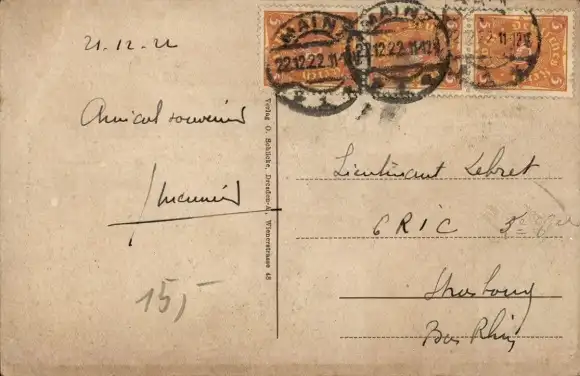 21.12.22
Amical souvenir
Meunier
15,-
Verlag O. Schlicke, Dresden-A., Wienerstrasse 48
MAINZ
22.12.22.11-12
MAINZ
22.12.22.11-12
22.11-12
5
5
5
Lieutenant Lebret
CRIC
Strasbourg
Bas Rhin